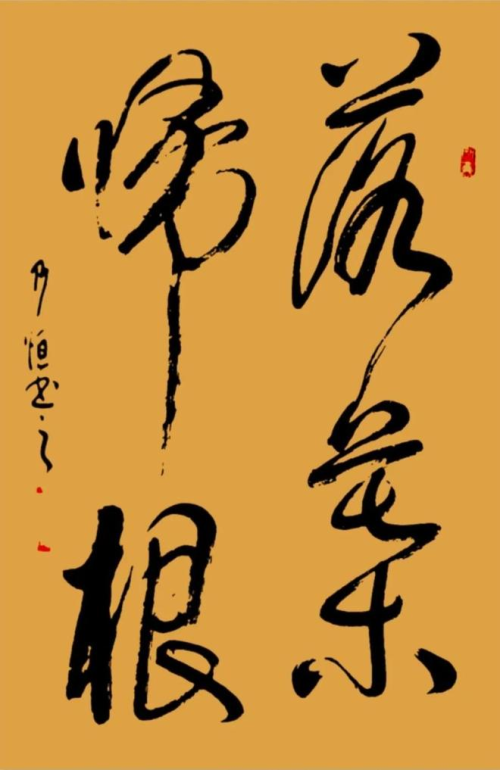 落葉
歸根
乃恒书之